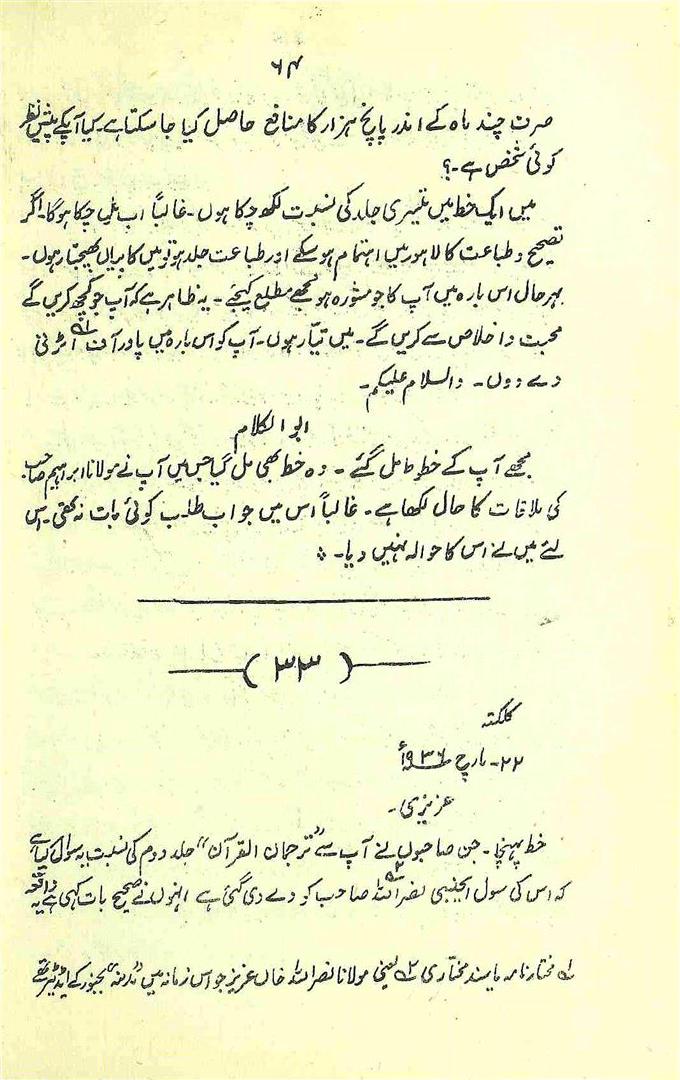 ۶۴
صرف چند ماہ کے اندر پانچ ہزار کا منافع حاصل کیا جا سکتا ہے۔ کیا آپ کے پیشِ نظر
کوئی شخص ہے۔؟
میں ایک خط میں تیسری جلد کی نسبت لکھ چکا ہوں۔ غالباً اب مل چکا ہوگا۔ اگر
تصحیح و طباعت کا لاہور میں اہتمام ہو سکے اور طباعت جلد ہو تو میں کاپیاں بھیجتا رہوں۔
بہر حال اس بارہ میں آپ کا جو مشورہ ہو مجھے مطلع کیجئے۔ یہ ظاہر ہے کہ آپ جو کچھ کریں گے
محبت و اخلاص سے کریں گے۔ میں تیار ہوں۔ آپ کو اس بارہ میں پاور آف اٹرنی ؎۱
دے دوں۔ والسلام علیکم۔
ابوالکلام
مجھے آپ کے خطوط مل گئے۔ وہ خط بھی مل گیا جس میں آپ نے مولانا ابراہیم صاحب
کی ملاقات کا حال لکھا ہے۔ غالباً اس میں جواب طلب کوئی بات نہ تھی۔ اس
لئے میں نے اس کا حوالہ نہیں دیا۔ ؞
(۳۳)
کلکتہ
۲۲۔ مارچ ۱۹۳۶ء
عزیزی۔
خط پہنچا۔ جن صاحبوں نے آپ سے "ترجمان القرآن" جلد دوم کی نسبت یہ سوال کیا ہے
کہ اس کی سول ایجنسی نصر اللہ ؎۲ صاحب کو دے دی گئی ہے انہوں نے صحیح بات کہی ہے یہ واقعہ
؎۱ مختار نامہ یا سند مختاری ؎۲ یعنی مولانا نصر اللہ خاں عزیز جو اس زمانہ میں "مدینہ" بجنور کے ایڈیٹر تھے